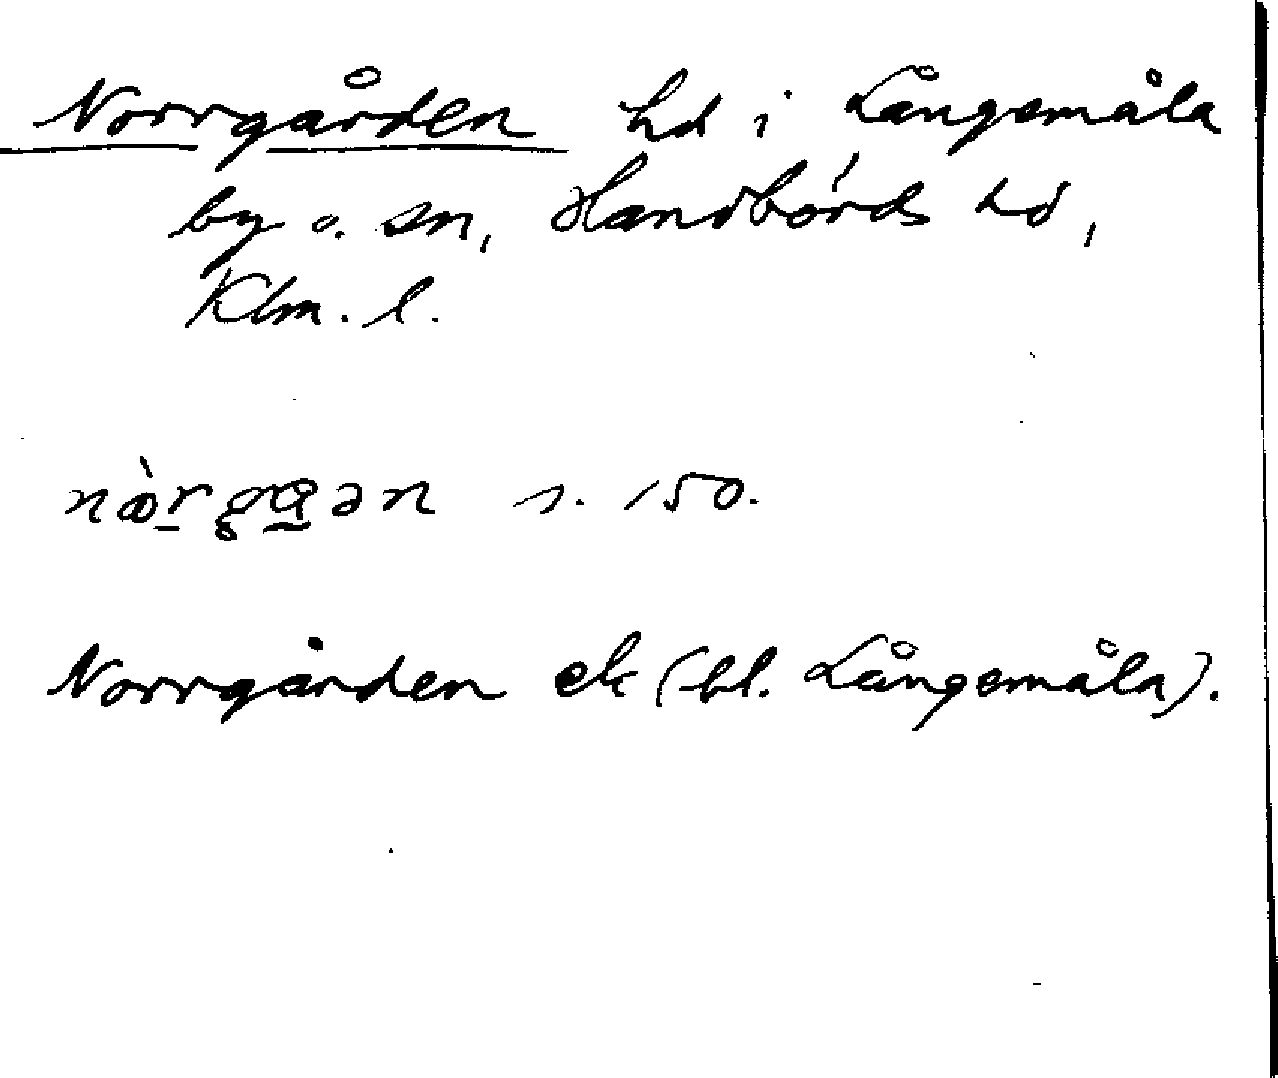 Norrgården hd i Långemåla
by o. sn, Handbörds hd,
Klm. l.
s. 150.
Norrgården ek (bl. Långemåla).